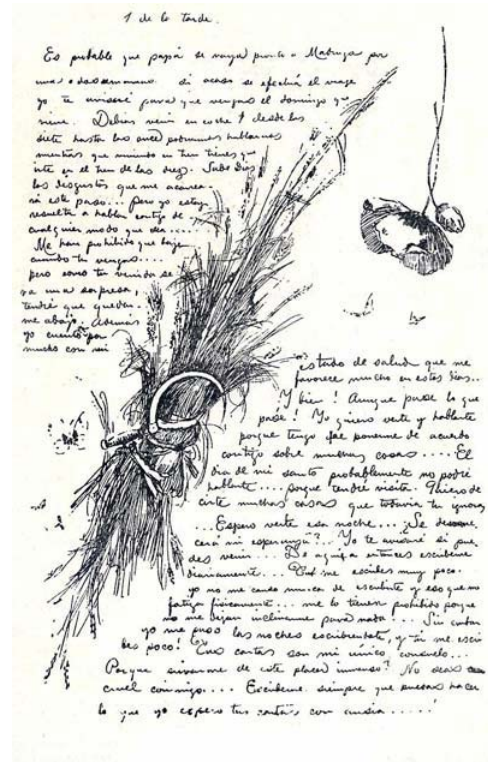 1 de la tarde.
Es probable que papá se vaya pronto a Madruga por
una o dos semanas. Si acaso se efectúa el viaje
yo te avisaré para que vengas el domingo que
viene. Debías venir en coche y desde las
siete hasta las once podremos hablarnos
mientras que viniendo en tren tienes que
irte en el tren de las diez. Sabe Dios
los disgustos que me acarrea-
rá este paso... Pero yo estoy
resuelta a hablar contigo de
cualquier modo que sea....
Me han prohibido que baje
cuando tu vengas....
pero como tu venida se-
ra una sorpresa,
tendré que quedar-
me abajo. Además
yo cuento por
mucho con mi
estado de salud que me
favorece mucho en estos días..
Y bien! Aunque pase lo que
pase! Yo quiero verte y hablarte
porque tengo que ponerme de acuerdo
contigo sobre muchas cosas.....El
dia de mi santo probablemente no podré
hablarte....porque tendré visita. Quiero de-
cirte muchas cosas que todavia tu ignoras
...Espero verte esa noche....Se desvane-
cerá mi esperanza?... Yo te avisaré si pue-
des venir.... De aquí a entonces escribeme
diariamente... Tu me escibes muy poco.
yo no me canso nunca de escribirte y eso que me
fatiga fisicamente....me lo tienen prohibido porque
no me dejan inclinarme para nada.... Sin embar
yo me paso las noches escribiendote, y tu me escri
bes poco! Tus cartas son mi único consuelo...
Porque privarme de este placer inmenso? No seas
cruel conmigo.... Escribeme siempre que puedas hacer
lo que yo espero tus cartas con ansia.....!